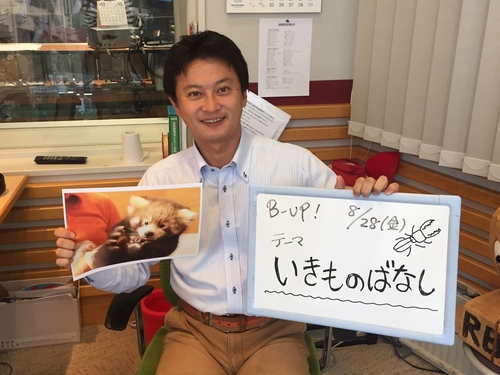 B-UP!
8/28(金)
テーマ
いきものばなし
RE